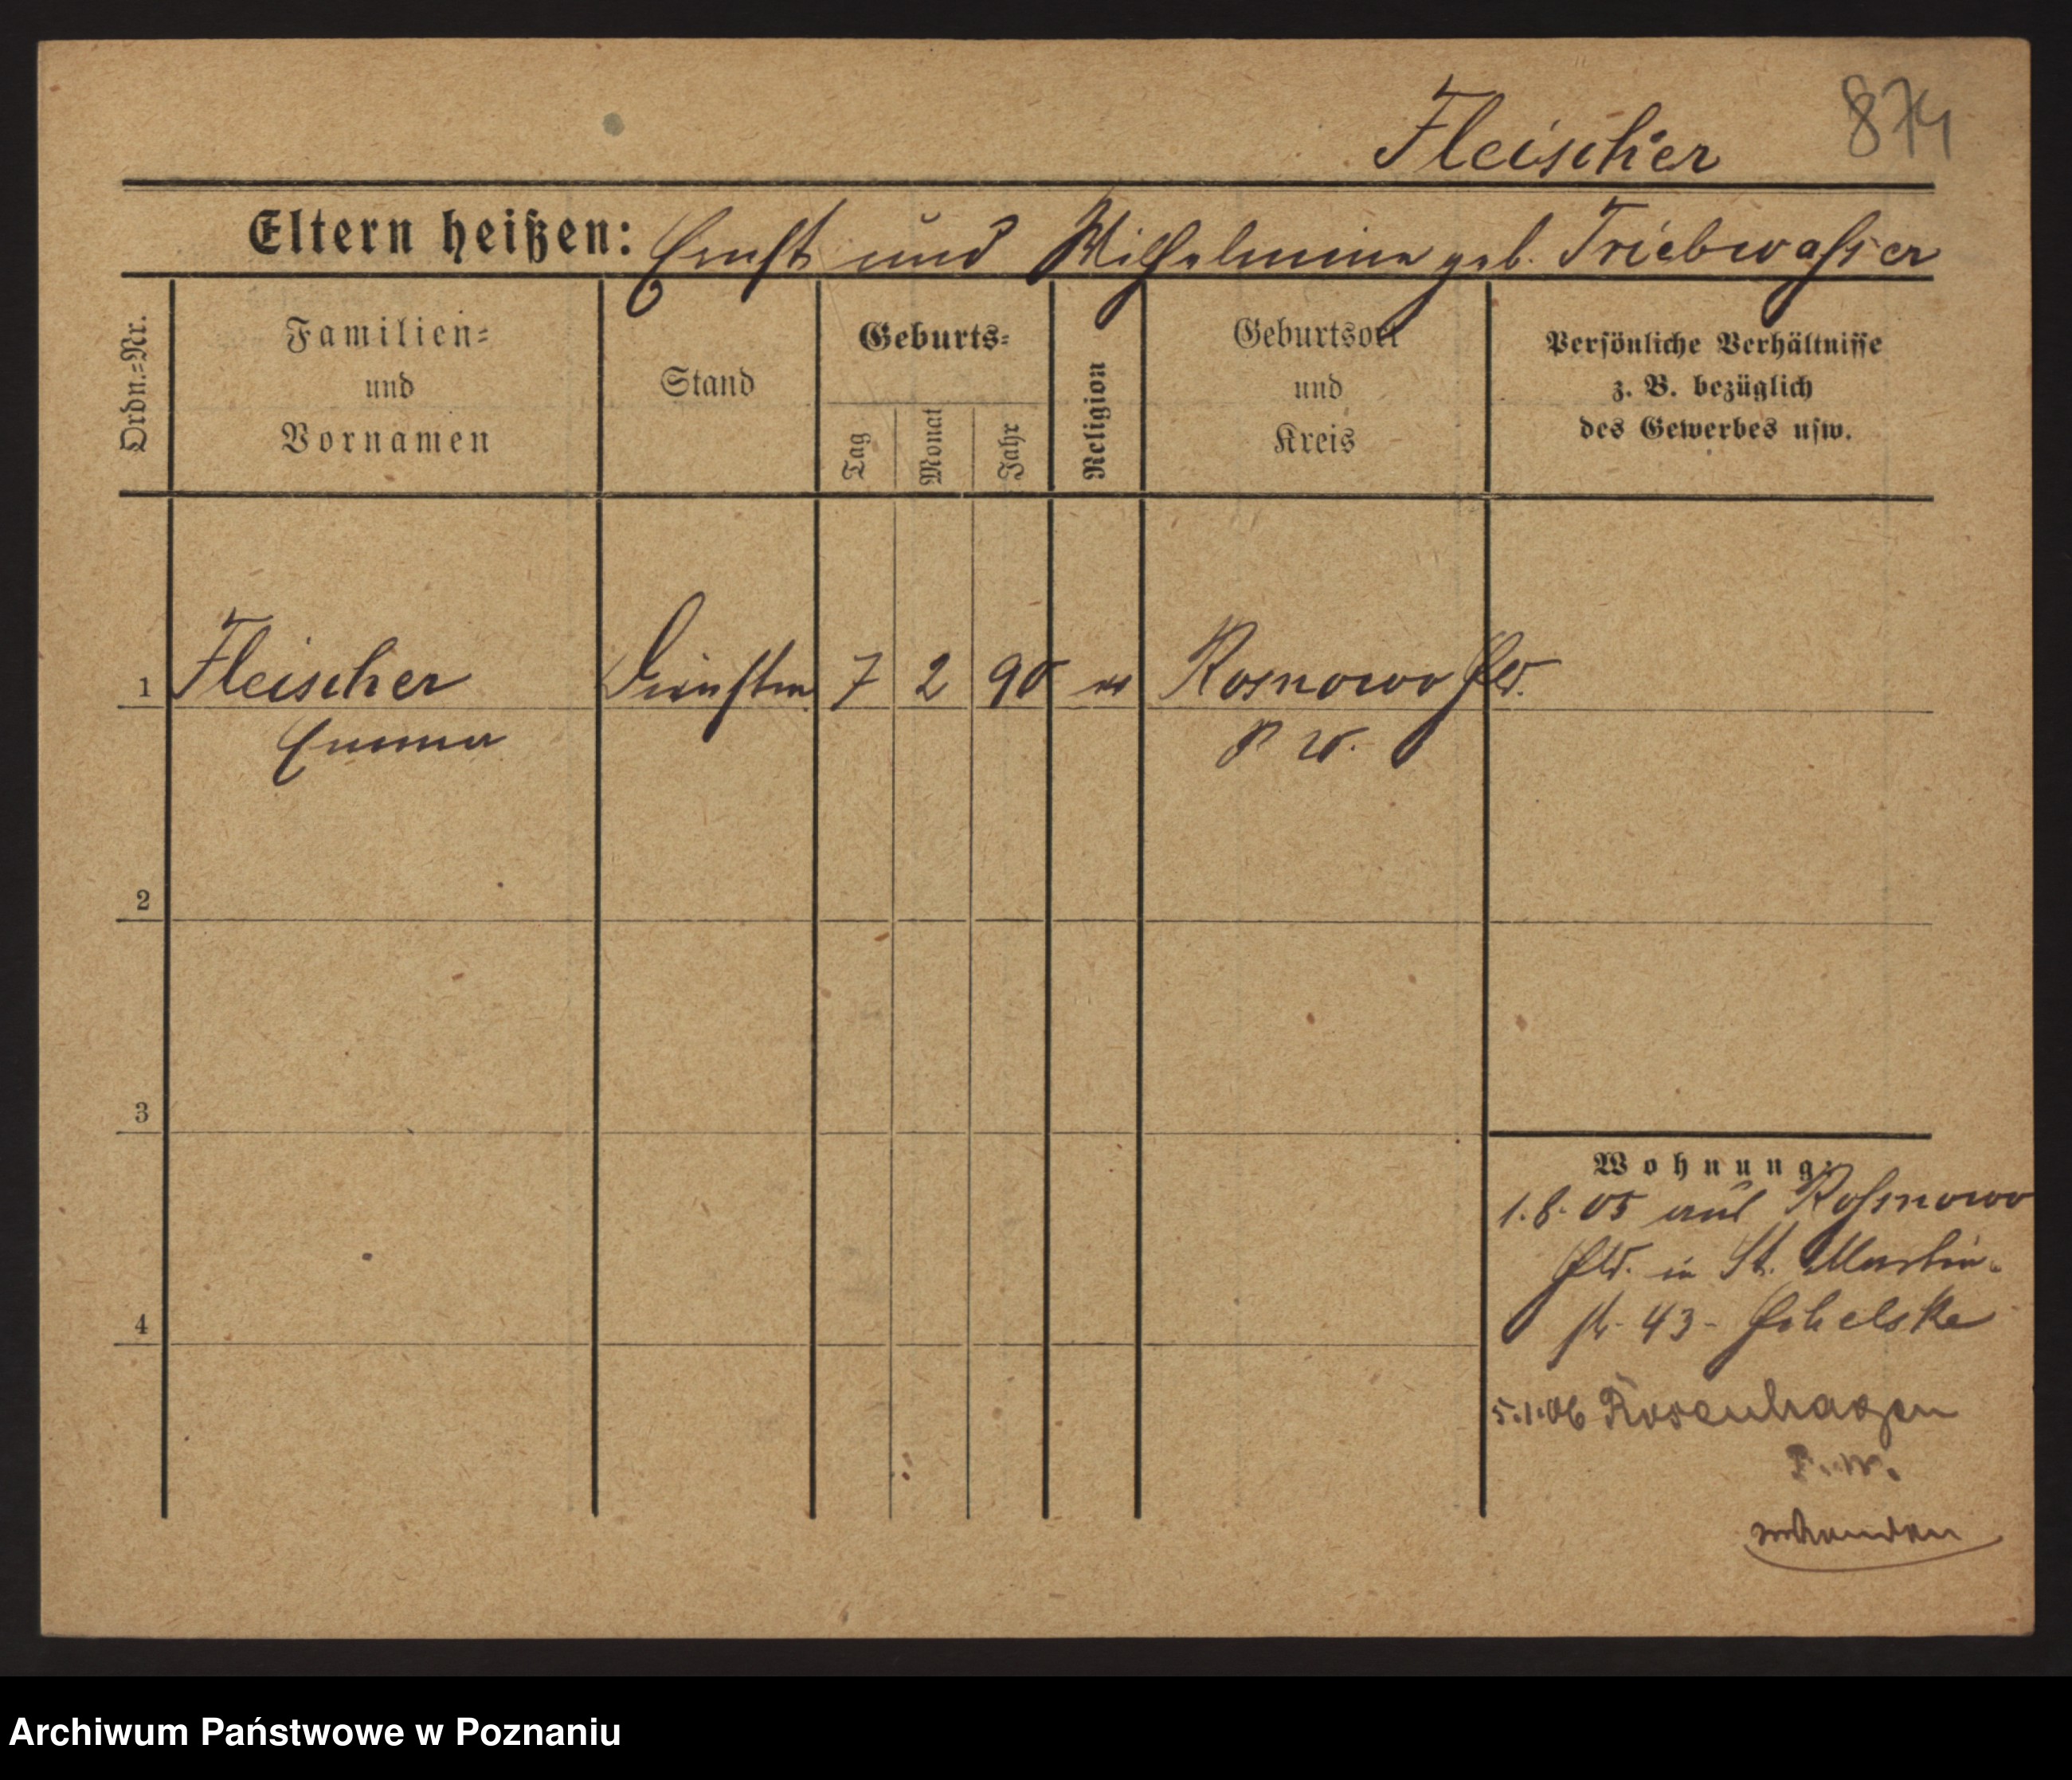 874
Fleischer
Eltern heißen: Ernst und Wilhelmine geb. Triebwasser
Ordn.-Nr.
Familien- und Vornamen
Stand
Geburts-
Tag
Monat
Jahr
Religion
Geburtsort und Kreis
Persönliche Verhältnisse
z. B. bezüglich
des Gewerbes usw.
1 Fleischer 7 2 90 Rosnowo Hld.
Emma P W.
2
3
4
Wohnung:
1.8.05 aus Rosnowo
Hld. in St. Martin-
str. 43-
5.1.06 Rosenhagen
P. W.
Archiwum Państwowe w Poznaniu